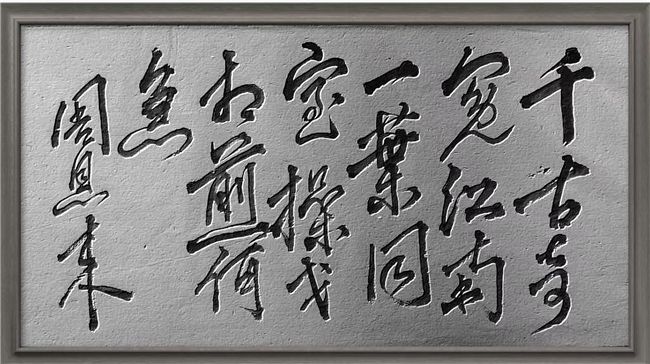 千古奇
冤江南
一葉同
室操戈
相煎何
急
周恩来